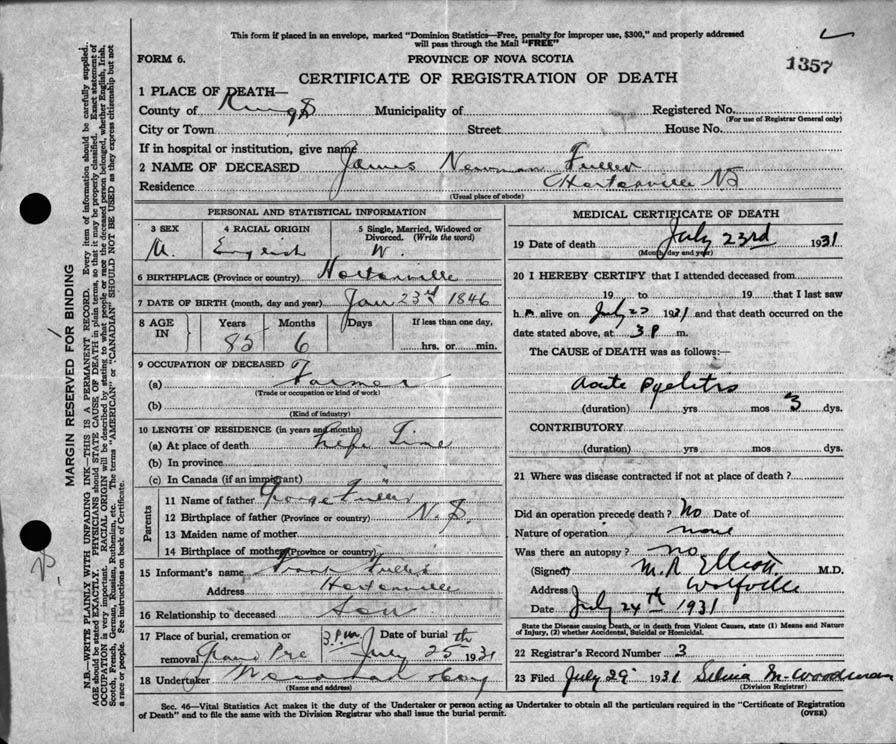 This form if placed in an envelope, marked "Dominion Statistics—Free, penalty for improper use, $300," and properly addressed
will pass through the Mail "FREE"
FORM 6.
PROVINCE OF NOVA SCOTIA
1357
CERTIFICATE OF REGISTRATION OF DEATH
1 PLACE OF DEATH—
County of Kings Municipality of Registered No.
(For use of Registrar General only)
City or Town Street House No.
If in hospital or institution, give name
2 NAME OF DECEASED James Newman Fuller
Residence Hortonville NS
(Usual place of abode)
PERSONAL AND STATISTICAL INFORMATION
3 SEX 4 RACIAL ORIGIN 5 Single, Married, Widowed or
Divorced. (Write the word)
M. English W.
6 BIRTHPLACE (Province or country) Hortonville
7 DATE OF BIRTH (month, day and year) Jan 23rd 1846
8 AGE IN Years Months Days If less than one day,
85 6 hrs. or min.
9 OCCUPATION OF DECEASED
(a) Farmer
(Trade or occupation or kind of work)
(b)
(Kind of industry)
10 LENGTH OF RESIDENCE (in years and months)
(a) At place of death Life Time
(b) In province "
(c) In Canada (if an immigrant) "
Parents
11 Name of father George Fuller
12 Birthplace of father (Province or country) N.S.
13 Maiden name of mother
14 Birthplace of mother (Province or country)
15 Informant's name Frank Fuller
Address Hortonville
16 Relationship to deceased Son
17 Place of burial, cremation or 3 P.M. Date of burial
removal Grand Pre July 25th 1931
18 Undertaker
(Name and address)
MEDICAL CERTIFICATE OF DEATH
19 Date of death July 23rd 1931
(Month, day and year)
20 I HEREBY CERTIFY that I attended deceased from
19 to 19 that I last saw
h m alive on July 22 1931 and that death occurred on the
date stated above, at 3 P m.
The CAUSE of DEATH was as follows:—
Acute Pyelitis
(duration) yrs mos 3 dys.
CONTRIBUTORY
(duration) yrs mos dys.
21 Where was disease contracted if not at place of death?
Did an operation precede death? No Date of
Nature of operation none
Was there an autopsy? no
(Signed) M.R. Elliott M.D.
Address Wolfville
Date July 24th 1931
State the Disease causing Death, or in death from Violent Causes, state (1) Means and Nature
of Injury, (2) whether Accidental, Suicidal or Homicidal.
22 Registrar's Record Number 3
23 Filed July 29 1931 Silvia M. Woodman
(Division Registrar)
Sec. 46—Vital Statistics Act makes it the duty of the Undertaker or person acting as Undertaker to obtain all the particulars required in the "Certificate of Registration
of Death" and to file the same with the Division Registrar who shall issue the burial permit.
(OVER)
MARGIN RESERVED FOR BINDING
N.B.—WRITE PLAINLY WITH UNFADING INK—THIS IS A PERMANENT RECORD. Every item of information should be carefully supplied.
AGE should be stated EXACTLY. PHYSICIANS should STATE CAUSE OF DEATH in plain terms, so that it may be properly classified. Exact statement of
OCCUPATION is very important. RACIAL ORIGIN will be described by stating to what people or race the deceased person belonged, whether English, Irish,
Scotch, French, German, Russian, Ruthenian, etc. The terms "AMERICAN" or "CANADIAN" SHOULD NOT BE USED as they express citizenship but not
a race or people. See instructions on back of Certificate.